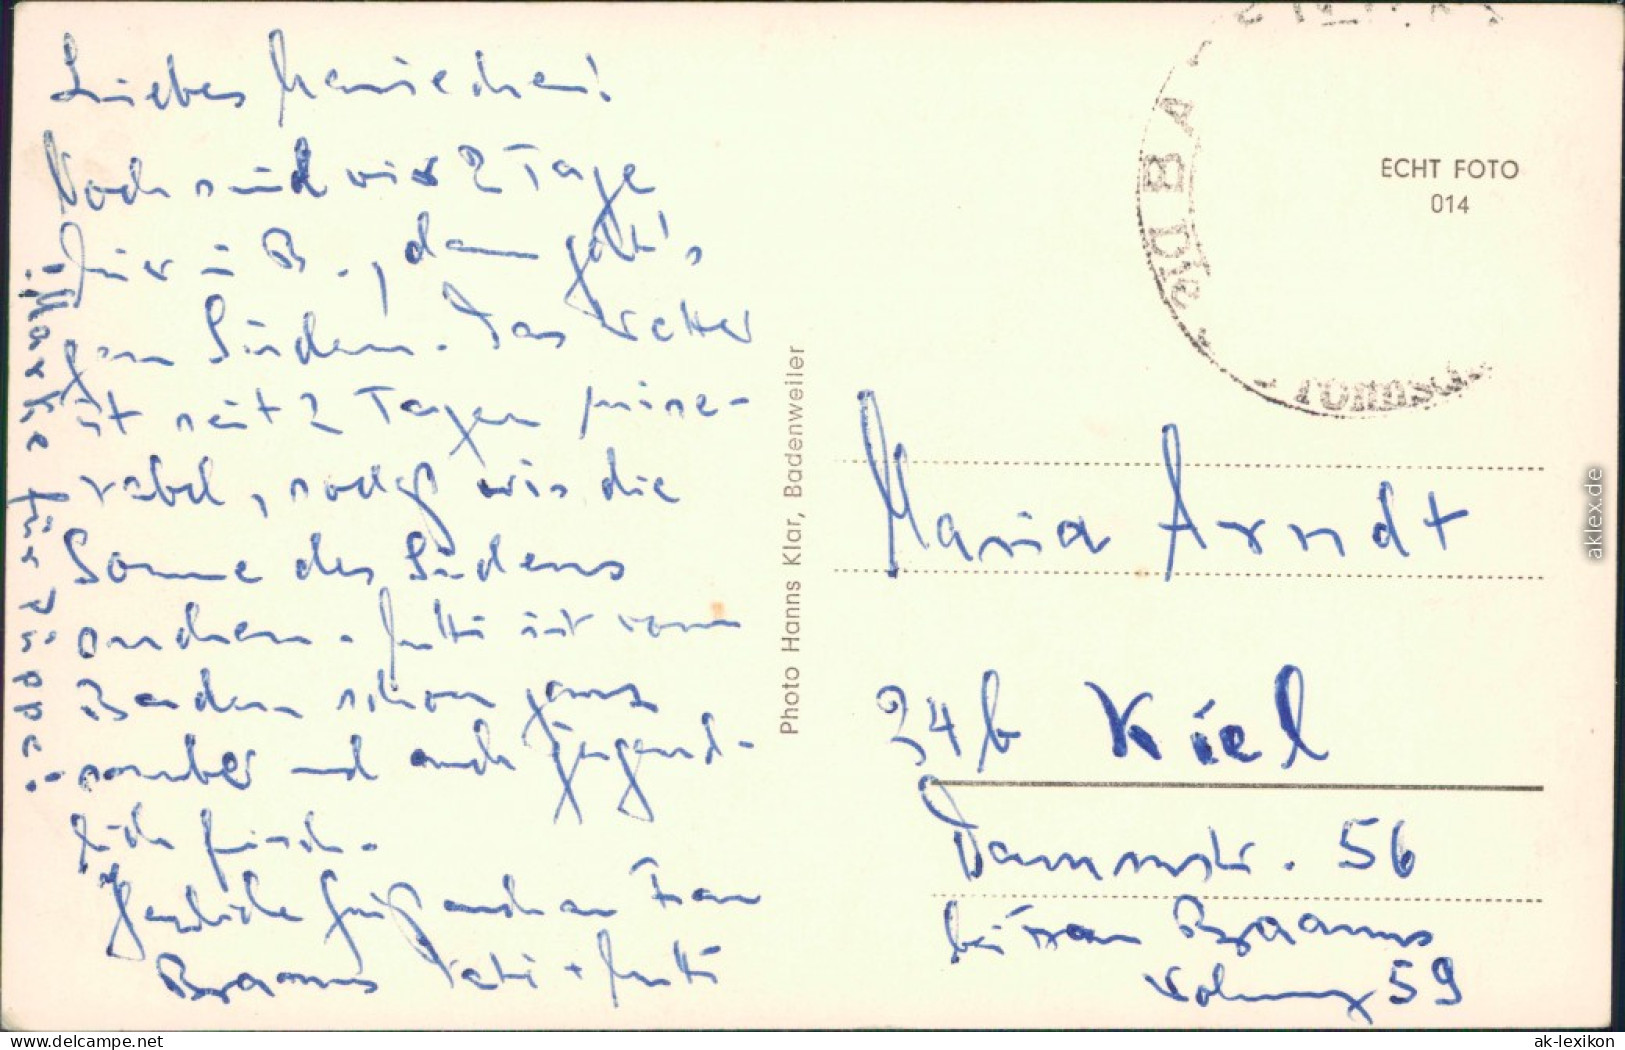 Liebes Mariechen!
Noch sind wir 2 Tage
hier in B., dann geht's
gen Süden. Das Wetter
ist seit 2 Tagen mise-
rabel, sodaß wir die
Sonne des Südens
suchen. Mutti ist vom
Baden schon ganz
sauber und auch jugend-
lich frisch.
Herzliche Grüße auch an Frau
Braams Vati + Mutti
! Marke für Püppi!
Photo Hanns Klar, Badenweiler
ECHT FOTO
014
BADE
Römisch
Maria Arndt
24b Kiel
Dammstr. 56
bei Frau Braams
Wohnung 59
aklex.de
www.delcampe.net
ak-lexikon